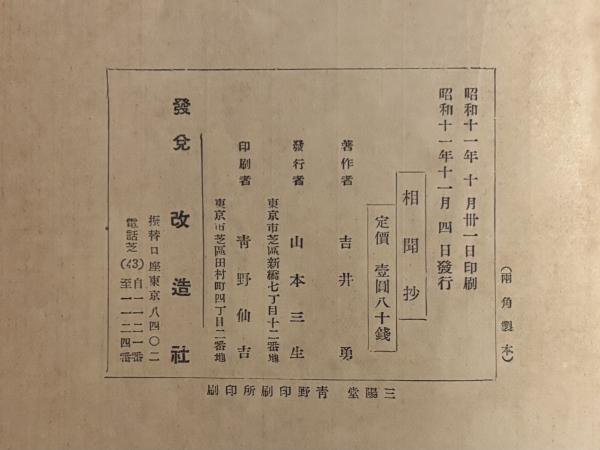 昭和十一年十月卅一日印刷
昭和十一年十一月四日發行
相聞抄
定價壹圓八十錢
著作者 吉井勇
東京市芝區新橋七丁目十二番地
發行者 山本三生
東京市芝區田村町四丁目二番地
印刷者 青野仙吉
發兌 改造社
振替口座東京八四〇二
電話芝(43)自一一二一番至一一二四番
(兩角製本)
三陽堂 青野印刷所印刷